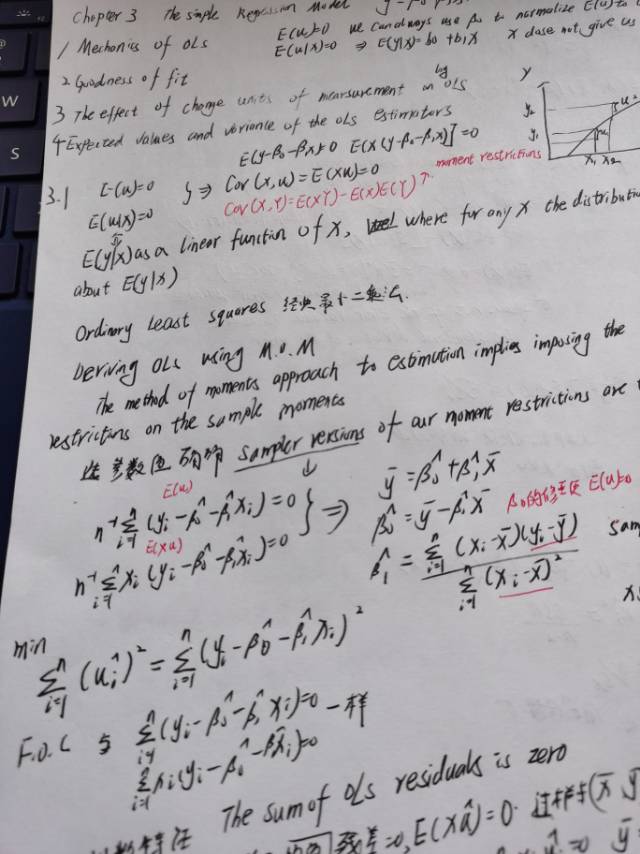 Chapter 3 The simple Regression Model
1 Mechanics of OLS
E(u)=0 we can always use β₀ to normalize E(u) to
E(u|x)=0 ⇒ E(y|x)=b₀+b₁x x dose not give us
2 Goodness of fit
3 The effect of change units of mearsurement on OLS
lg
4 Expected values and variance of the OLS estimators
y
y₂
y₁
x₁ x₂
E(y-β₀-β₁x)=0 E[x(y-β₀-β₁x)]=0
moment restrictions
3.1 E(u)=0
E(u|x)=0
} ⇒ Cov(x,u)=E(xu)=0
Cov(X,Y)=E(XY)-E(X)E(Y)
E(y|x) as a linear function of x, where for any x the distributio
about E(y|x)
Ordinary Least squares 经典最小二乘法.
Deriving OLS using M.O.M
The method of moments approach to estimution implies imposing the
restrictions on the sample moments
选参数值 sampler versions of our moment restrictions are
↓
E(u)
n⁻¹∑ᵢ₌₁ⁿ(yᵢ-β̂₀-β̂₁xᵢ)=0
E(xu)
n⁻¹∑ᵢ₌₁ⁿxᵢ(yᵢ-β̂₀-β̂₁xᵢ)=0
} ⇒ ȳ=β̂₀+β̂₁x̄
β̂₀=ȳ-β̂₁x̄
β₀的修正使 E(u)=0
β̂₁=∑ᵢ₌₁ⁿ(xᵢ-x̄)(yᵢ-ȳ)
∑ᵢ₌₁ⁿ(xᵢ-x̄)²
min
∑ᵢ₌₁ⁿ(ûᵢ)²=∑ᵢ₌₁ⁿ(yᵢ-β̂₀-β̂₁xᵢ)²
F.O.C 与 ∑ᵢ₌₁ⁿ(yᵢ-β̂₀-β̂₁xᵢ)=0 一样
∑ᵢ₌₁ⁿxᵢ(yᵢ-β̂₀-β̂₁xᵢ)=0
The sum of OLS residuals is zero
数特征
残差=0, E(xû)=0. 过样本(x̄ ȳ
W
S